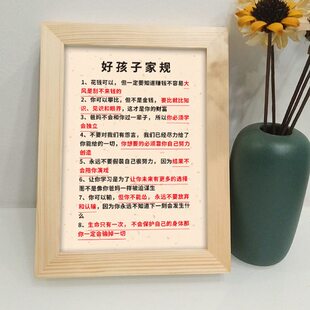 好孩子家规
1、花钱可以，但一定要知道赚钱不容易大
风是刮不来钱的
2、你可以攀比，但不是金钱，要比就比知
识，见识和眼界，这才是你的财富
3、爸妈不会和你过一辈子，所以你必须学
会独立
4、不要对我们有怨言，我们已经尽力给了
你能给的一切，你想要的必须靠你自己努力
创造
5、永远不要假装自己很努力，因为结果不
会陪你演戏
6、让你学习是为了让你未来有更多的选择
而不是像你爸妈一样被迫谋生
7、你可以输，但你不能怂，永远不要放弃
和认输，因为你永远不知道下一刻会发生什
么
8、生命只有一次，不会保护自己的身体那
你一定会输掉一切